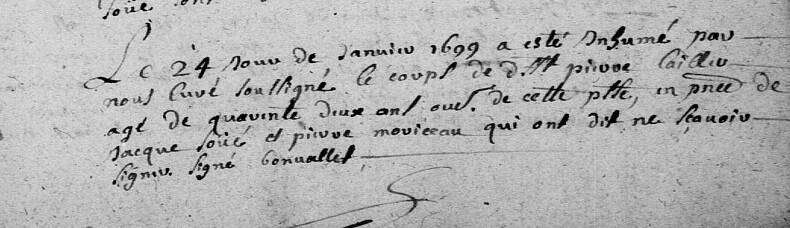 soüé
Le 24 Jour de Janvier 1699 a esté Inhumé par
nous Curé soussigné le corps de d.ft pierre Caillier
agé de quarente deux ans ou e͠s. de cette psse, en pnce de
Jacque soüé et pierre moriceau qui ont dit ne sçavoir
signer. signé bonvallet